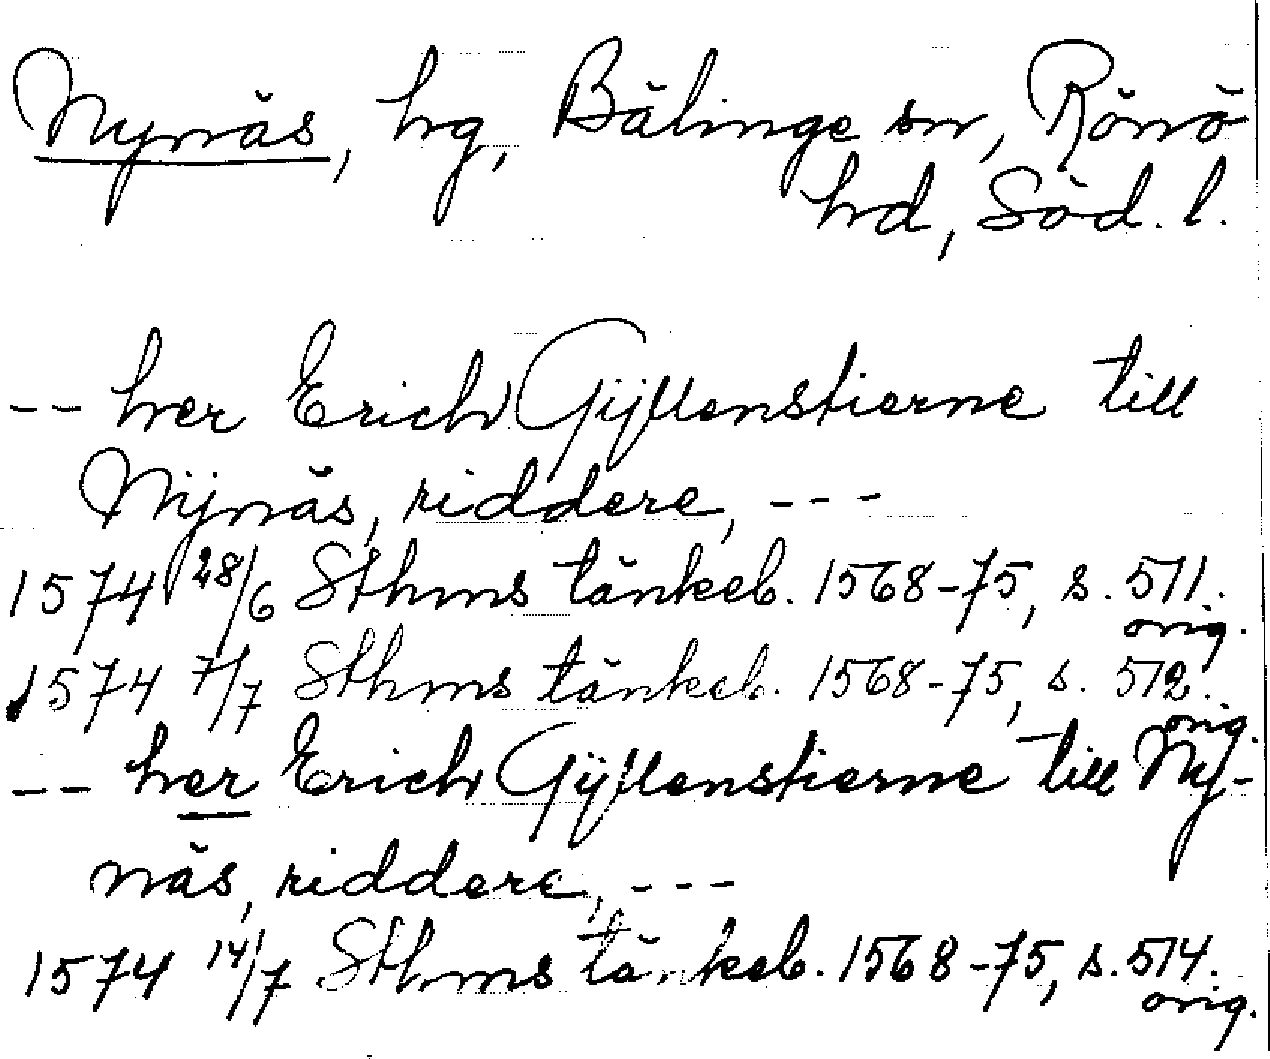 Nynäs, hg, Bälinge sn, Rönö
hd, Söd. l.
-- her Erich Gÿllenstierne till
Nijnäs, riddere, ---
1574 28/6 Sthms tänkeb. 1568-75, s. 511.
orig.
1574 7/7 Sthms tänkeb. 1568-75, s. 512.
orig.
-- her Erich Gÿllenstierne till Nÿ-
näs, riddere, ---
1574 14/7 Sthms tänkeb. 1568-75, s. 514.
orig.